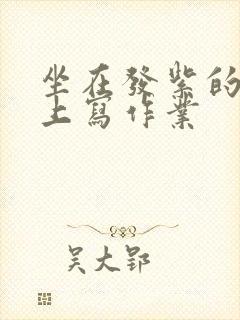 坐在發紫的
上寫作業
吴大郢